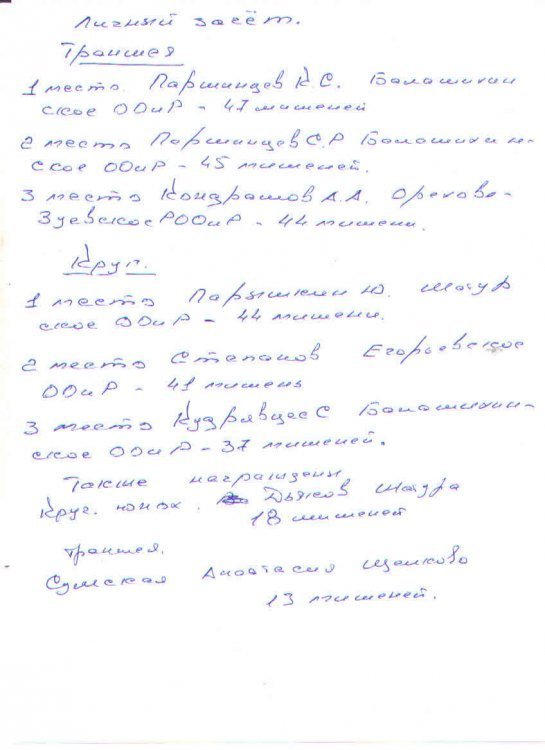 Личный зачёт.
Траншея
1 место. Паршинцев К.С. Балашихин
ское ООиР - 47 мишеней
2 место Паршинцев С.Р Балашихин-
ское ООиР - 45 мишеней.
3 место Кондрашов А.А. Орехово-
Зуевское РООиР - 44 мишени.
Круг.
1 место Ю. Шатур
ское ООиР - 44 мишени.
2 место Степанов Егорьевское
ООиР - 41 мишень
3 место Кудрявцев С Балашихин-
ское ООиР - 37 мишеней.
Также награждены
Круг. юнош. Дьяков Шатура
18 мишеней
Траншея.
Сумская Анастасия Щелково
13 мишеней.